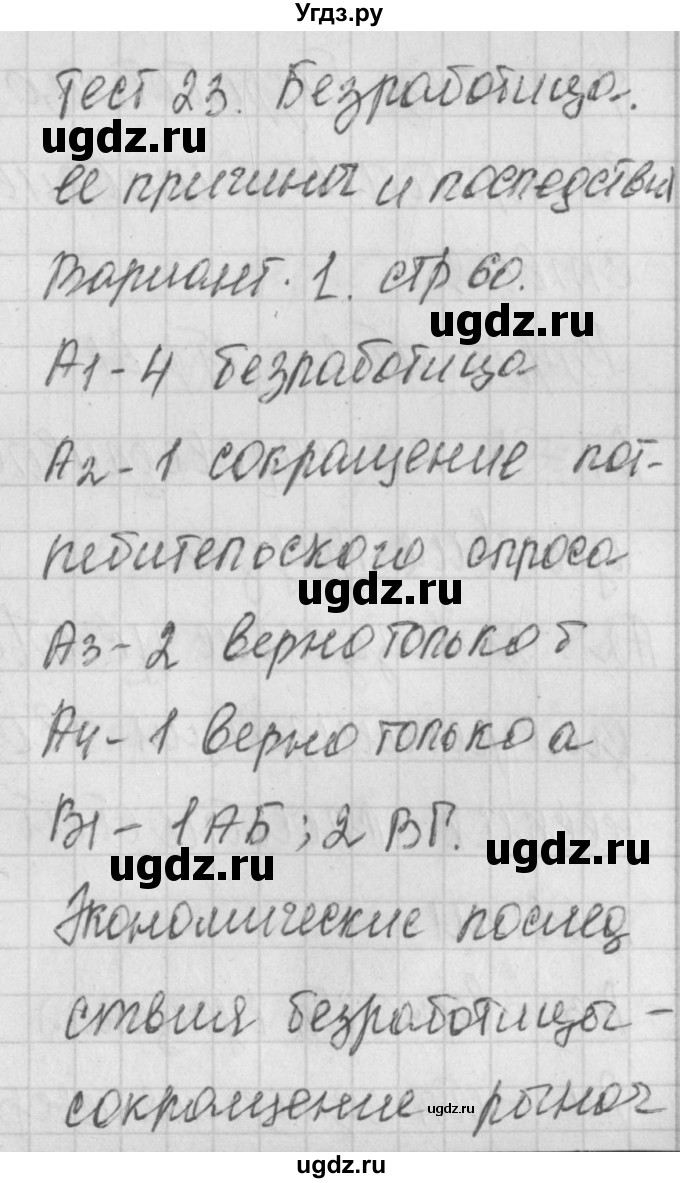 Угдз.ру
Тест 23. Безработица.
ugdz.ru
ее причины и последствия
Вариант. 1. стр 60.
ugdz.ru
А1 - 4 безработица
А2 - 1 сокращение пот-
ребительского спроса
ugdz.ru
А3 - 2 верно только б
А4 - 1 верно только а
В1 - 1 АБ; 2 ВГ.
ugdz.ru ugdz.ru
Экономические послед
ствия безработицы -
сокращение рыноч
ugdz.ru
ugdz.ru